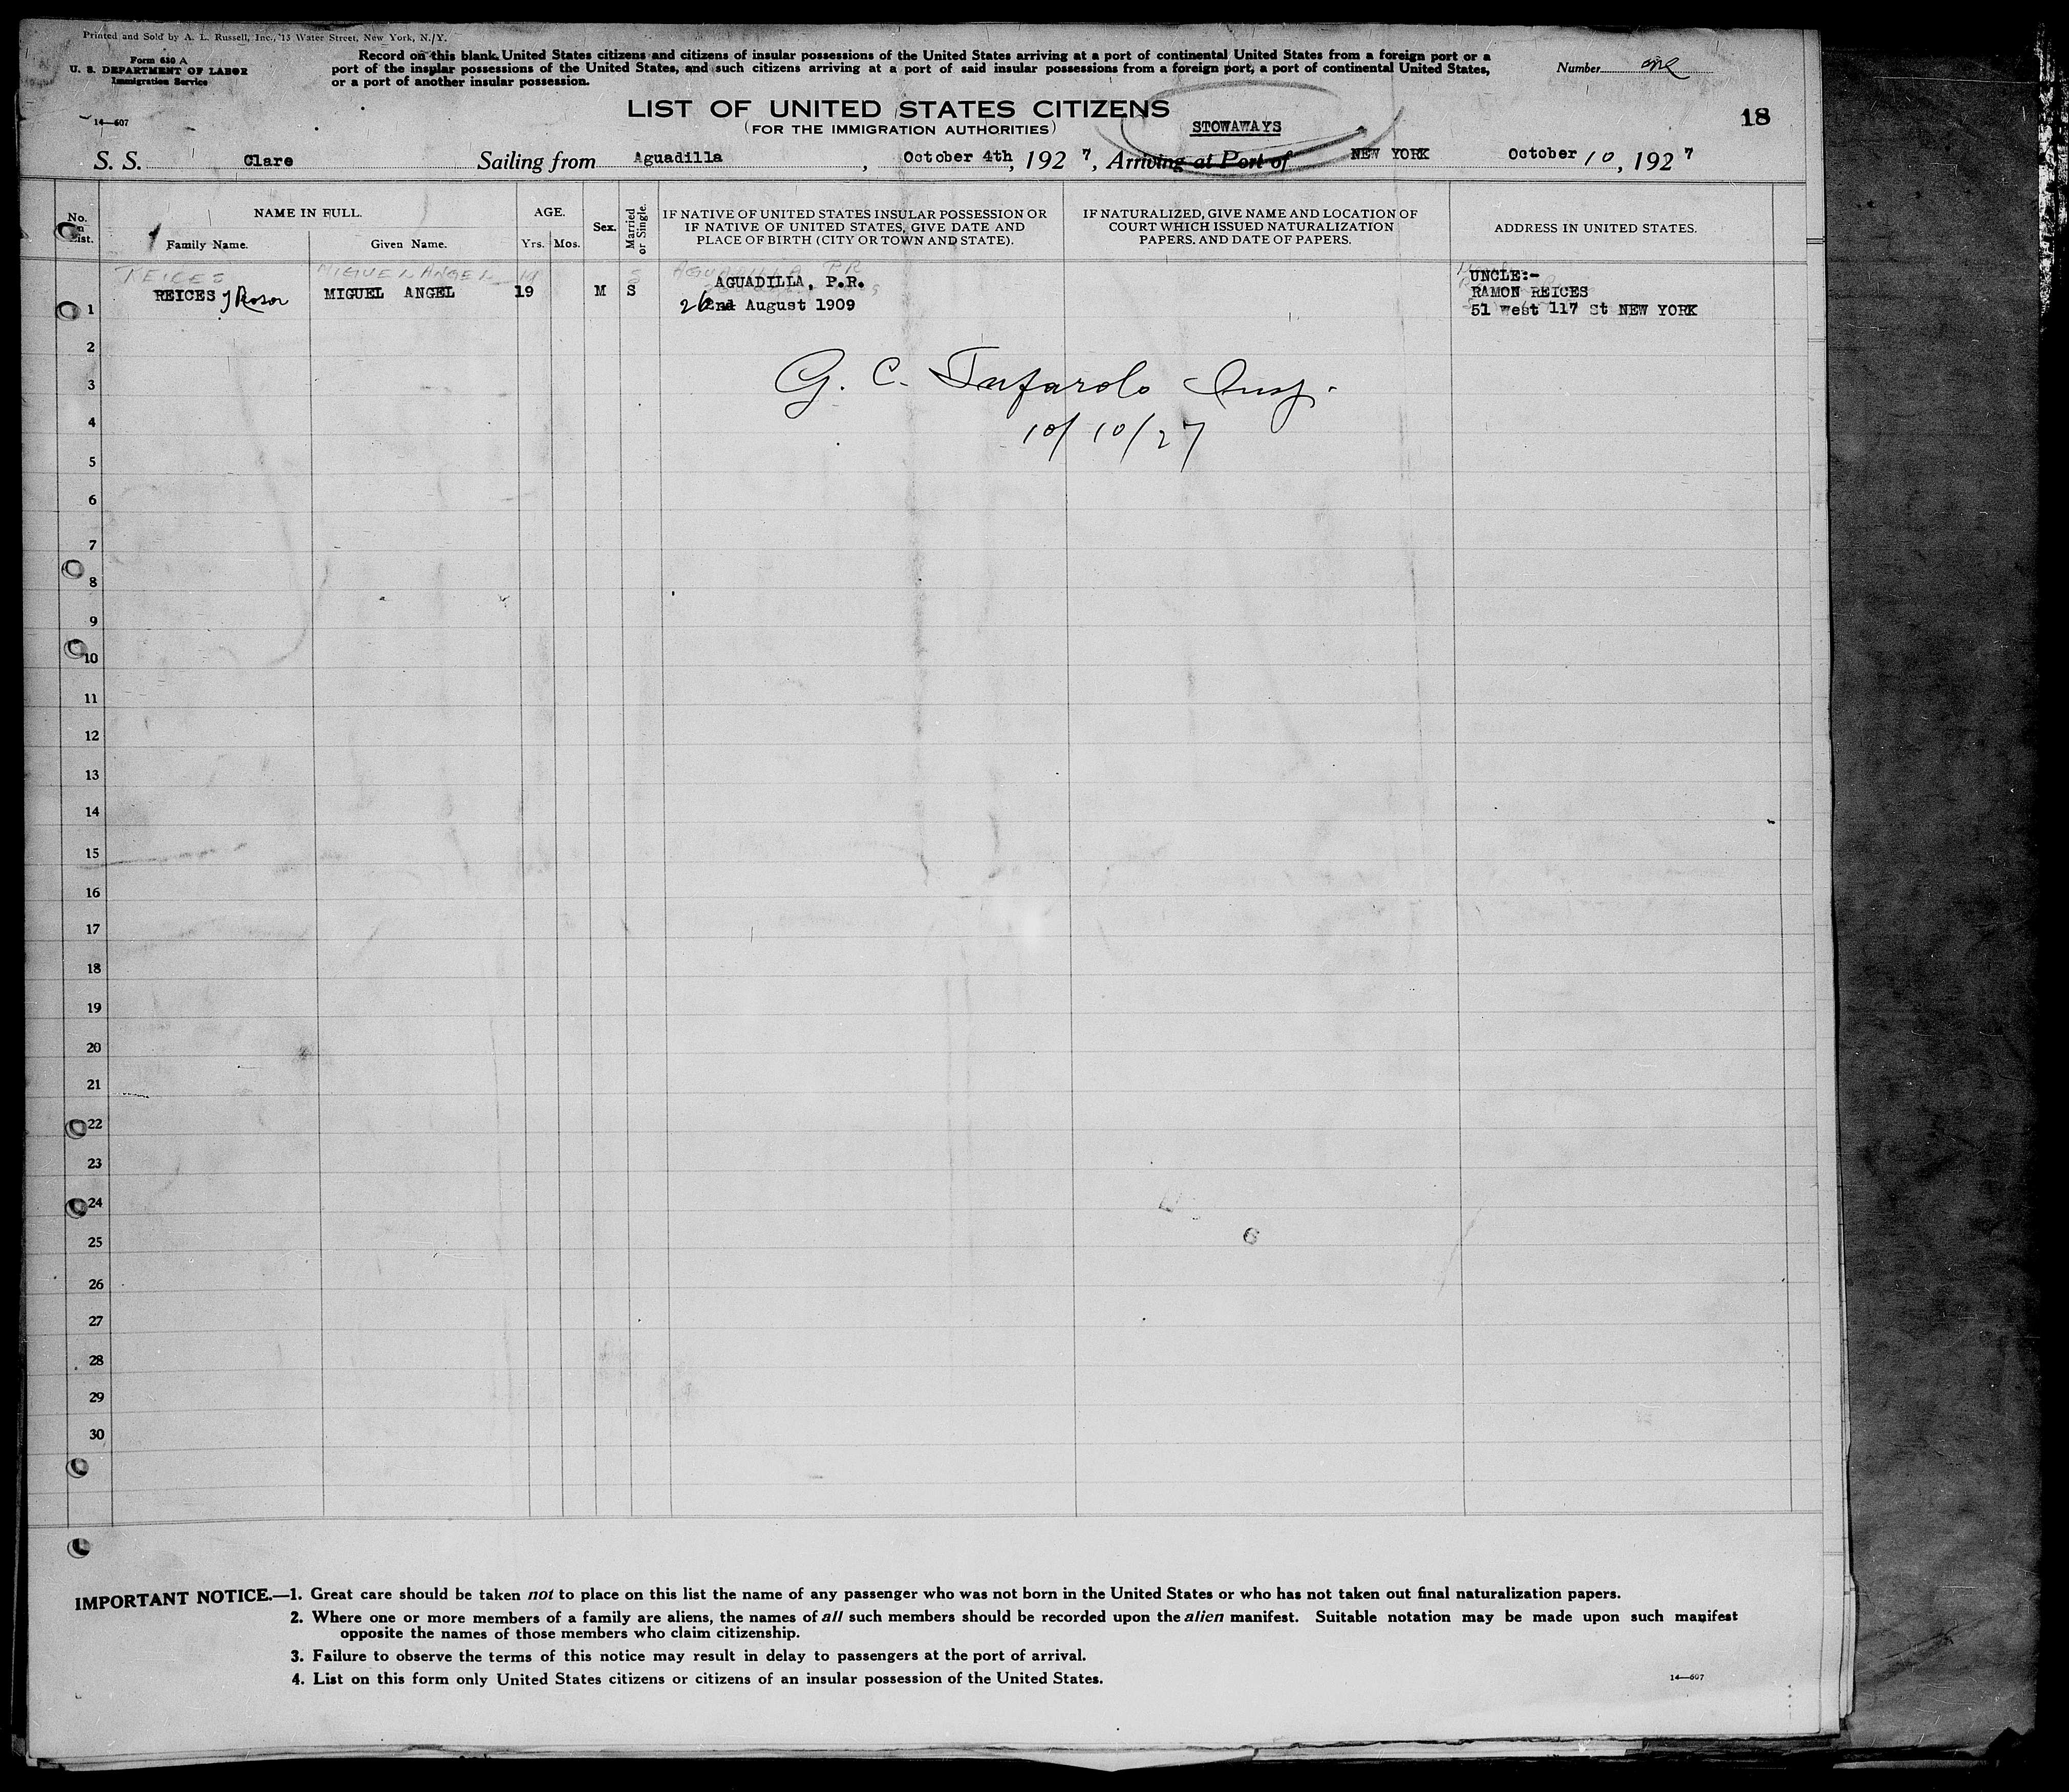 Printed and Sold by A. L. Russell, Inc., 15 Water Street, New York, N. Y.
Form 630 A
U. S. DEPARTMENT OF LABOR
Immigration Service
Record on this blank United States citizens and citizens of insular possessions of the United States arriving at a port of continental United States from a foreign port or a
port of the insular possessions of the United States, and such citizens arriving at a port of said insular possessions from a foreign port, a port of continental United States,
or a port of another insular possession.
Number one
LIST OF UNITED STATES CITIZENS
(FOR THE IMMIGRATION AUTHORITIES)
STOWAWAYS
18
14—607
S. S. Clare Sailing from Aguadilla, October 4th, 1927, Arriving at Port of NEW YORK October 10, 1927
No. on List.
NAME IN FULL.
Family Name.
Given Name.
AGE.
Yrs.
Mos.
Sex.
Married or Single.
IF NATIVE OF UNITED STATES INSULAR POSSESSION OR
IF NATIVE OF UNITED STATES, GIVE DATE AND
PLACE OF BIRTH (CITY OR TOWN AND STATE).
IF NATURALIZED, GIVE NAME AND LOCATION OF
COURT WHICH ISSUED NATURALIZATION
PAPERS, AND DATE OF PAPERS.
ADDRESS IN UNITED STATES.
REICES MIGUEL ANGEL 19 S AGUADILLA P.R.
1 REICES y MIGUEL ANGEL 19 M S AGUADILLA, P.R.
26 2nd August 1909
UNCLE:-
RAMON REICES
51 West 117 St NEW YORK
G. C. Insp.
10/10/27
2
3
4
5
6
7
8
9
10
11
12
13
14
15
16
17
18
19
20
21
22
23
24
25
26
27
28
29
30
6
IMPORTANT NOTICE.—1. Great care should be taken not to place on this list the name of any passenger who was not born in the United States or who has not taken out final naturalization papers.
2. Where one or more members of a family are aliens, the names of all such members should be recorded upon the alien manifest. Suitable notation may be made upon such manifest
opposite the names of those members who claim citizenship.
3. Failure to observe the terms of this notice may result in delay to passengers at the port of arrival.
4. List on this form only United States citizens or citizens of an insular possession of the United States.
14—607